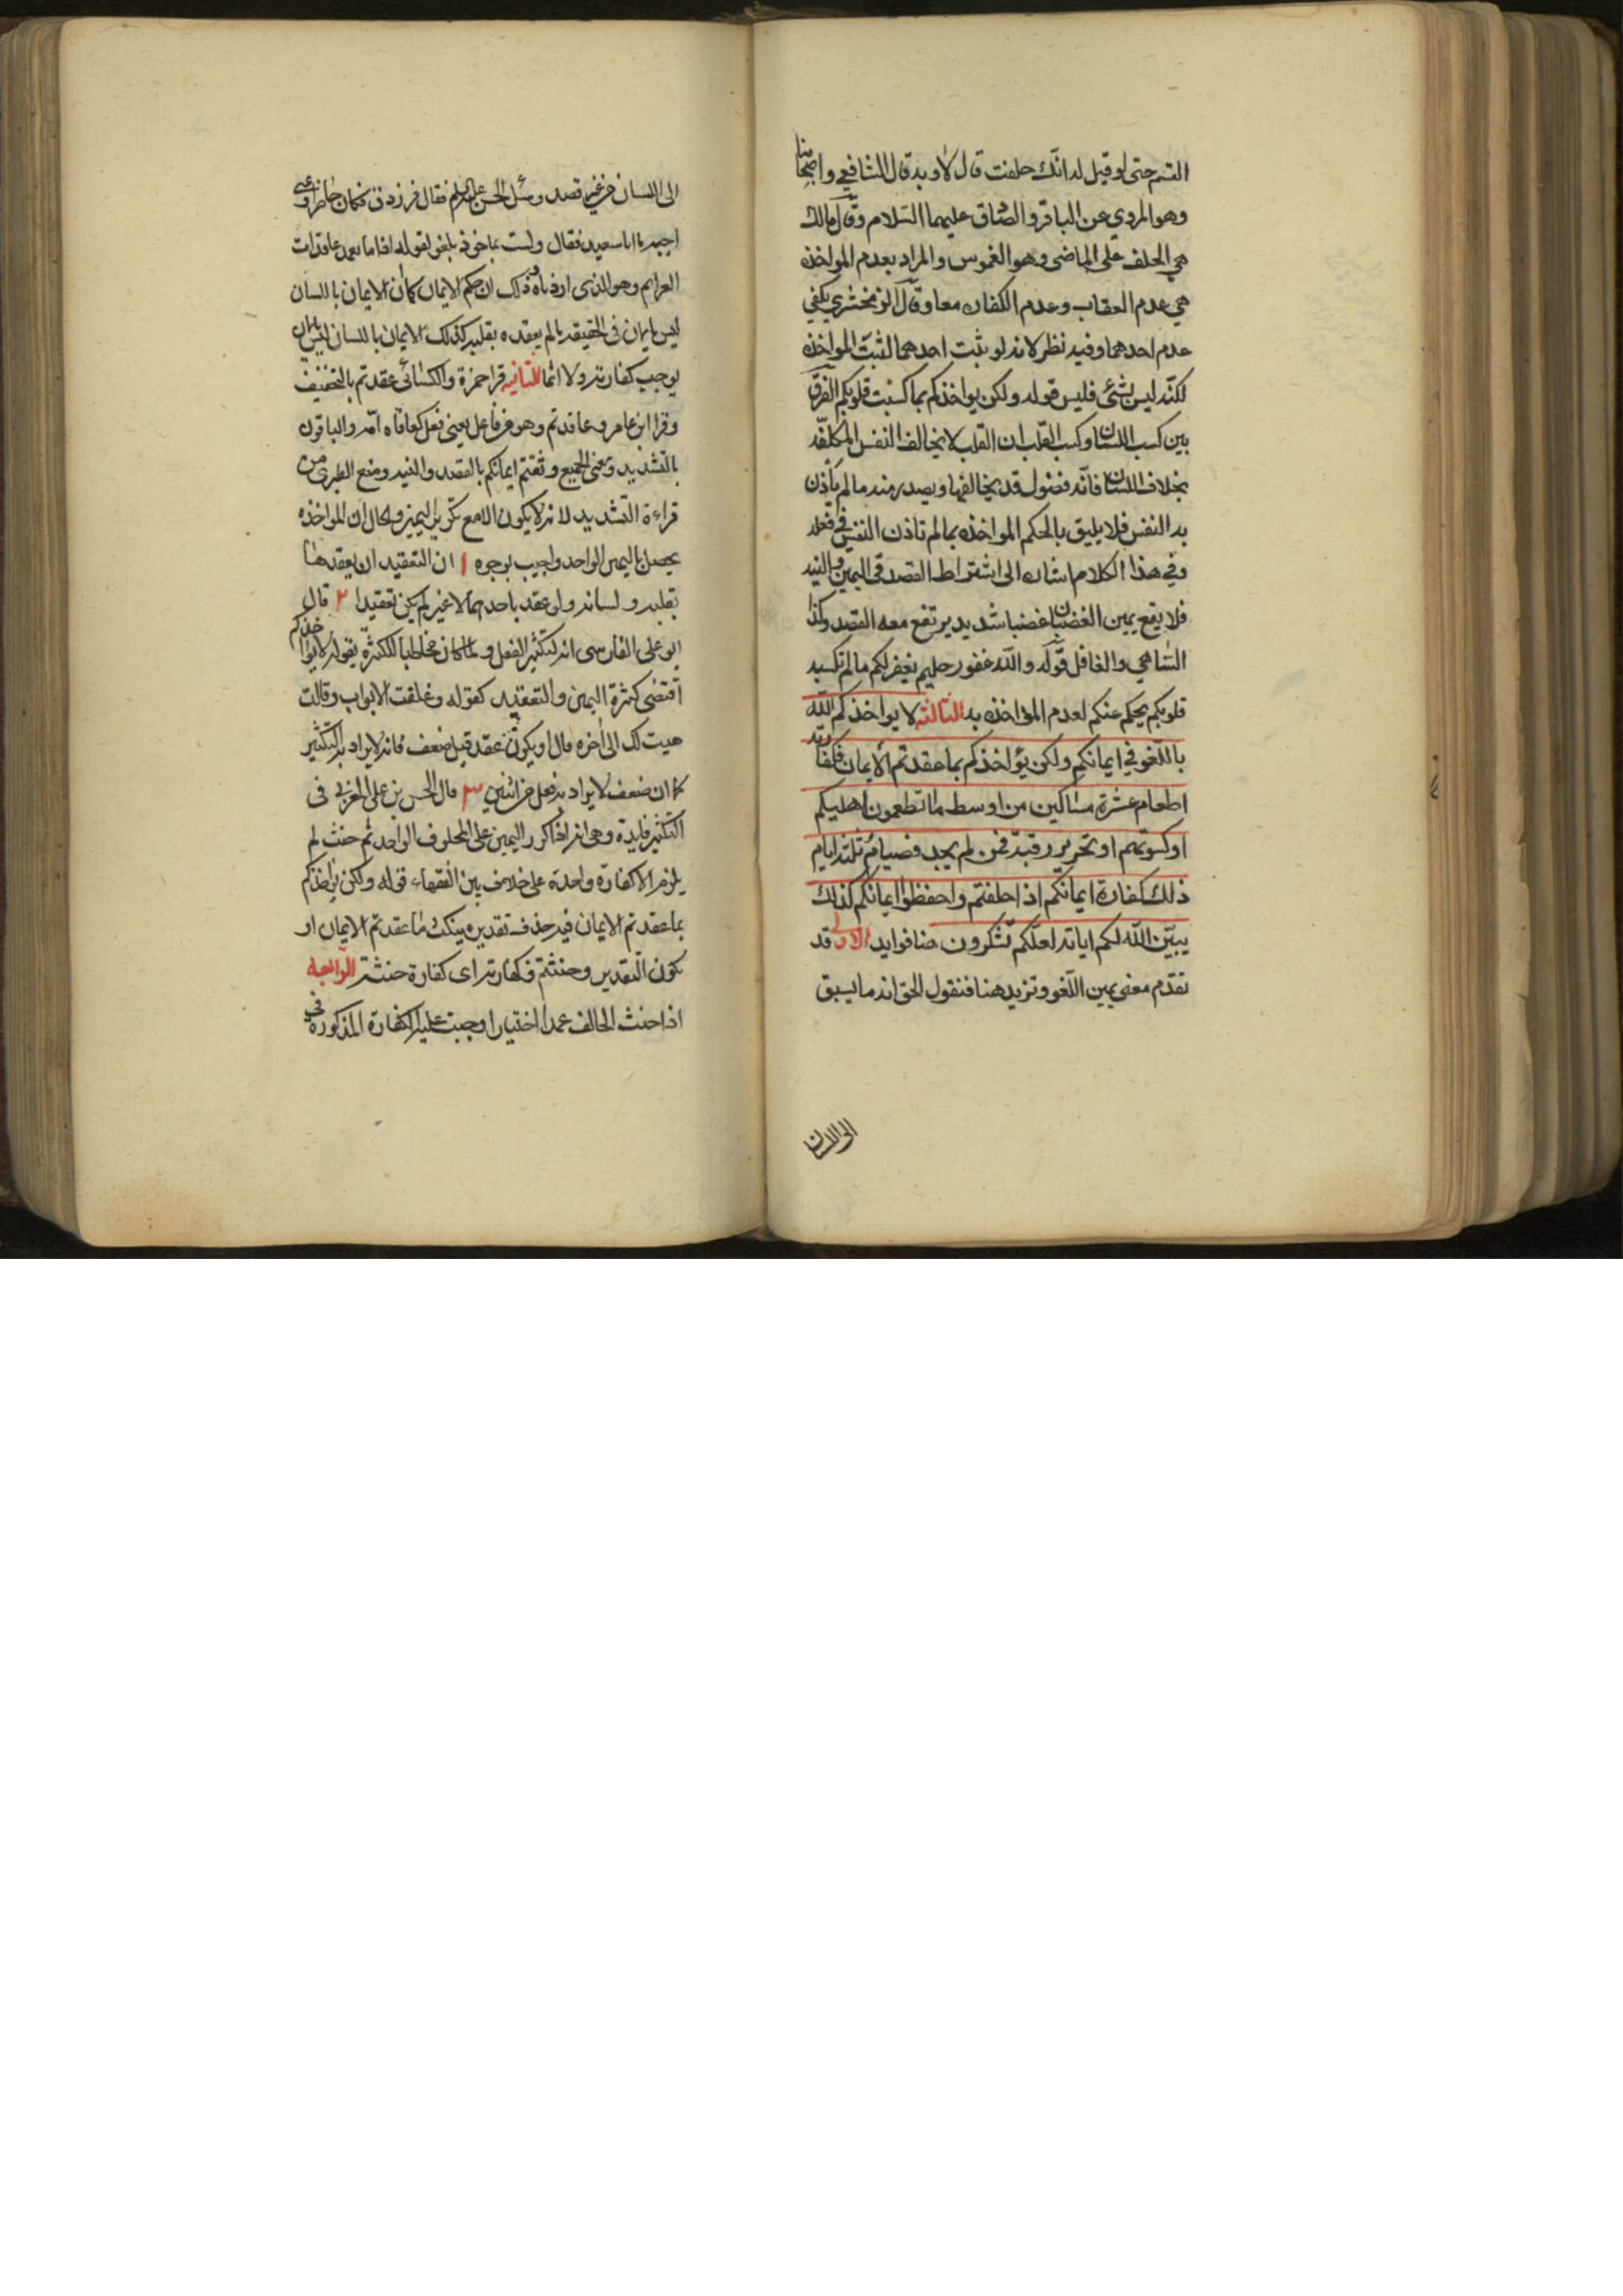 القسم حتى لو قيل له انّك حلفت قال لا وبه قال الشافعي واصحابنا
وهو المروي عن الباقر والصّادق عليهما السّلام وقال مالك
هي الحلف على الماضي وهو الغموس والمراد بعدم المواخذه
هي عدم العقاب وعدم الكفاره معا وقال الزمخشري يكفي
عدم احدهما وفيه نظر لانه لو يثبت احدهما لثبت المواخذه
لكنّه ليس بشئ فليس قوله ولكن يواخذكم بما كسبت قلوبكم الفرق
بين كسب اللسان وكسب القلب ان القلب لا يخالف النفس المكلفه
بخلاف اللسان فانّه فضول قد يخالفها ويصدر منه ما لم يأذن
به النفس فلا يليق بالحكم المواخذه بما لم تاذن النفس في فعله
وفي هذا الكلام اشاره الى اشتراط القصد في اليمين والنيه
فلا يقع يمين الغضبان غضبا شديد يرتفع معه القصد وكذا
السّاهي والغافل قوله والله غفور حليم يغفر لكم ما لم تكسبه
قلوبكم يحكم عنكم لعدم المؤاخذه به الثالثه لا يواخذكم الله
باللّغو في ايمانكم ولكن يؤاخذكم بما عقدتم الايمان فكفارته
اطعام عشرة مساكين من اوسط ما تطعمون اهليكم
او كسوتهم او تحرير رقبة فمن لم يجد فصيام ثلثة ايام
ذلك كفارة ايمانكم اذا حلفتم واحفظوا ايمانكم كذلك
يبيّن الله لكم اياته لعلّكم تشكرون هنا فوايد الاولى قد
تقدّم معنى يمين اللّغو ونزيد هنا فنقول الحق انه ما يسبق
الى اللسان
الى اللسان من غير قصد وسئل الحسن عليه السلم فقال فرزدق وكان حاضرا دعني
اجيبه يا ابا سعيد فقال ولست بماخوذ بلغو تقوله اذا ما تعمد عاقدات
العزايم وهو الذى اردناه وذلك ان حكم الايمان كان الايمان باللسان
ليس بايمان فى الحقيقه ما لم يعقده بقلبه كذلك الايمان باللسان ليس بايمان
يوجب كفارته ولا اثما الثانيه قرا حمزة والكسائى عقدتم بالتخفيف
وقرا ابن عامر عاقدتم وهو من فاعل بمعنى فعل كعافاه الله والباقون
بالتشديد ومعنى الجميع وثقتم ايمانكم بالقصد والنيه ومنع الطبرى من
قراءة التشديد لانه لا يكون الا مع تكرير اليمين والحال ان المواخذه
يحصل باليمين الواحد واجيب بوجوه ١ ان التعقيد ان يعقدها
بقلبه ولسانه ولو عقد باحدهما لا غير لم يكن تعقيدا ٢ قال
ابو على الفارسى انه لتكثير الفعل ولما كان مخاطبا للكثرة بقوله لا يواخذكم
اقتضى كثرة اليمين والتعقيد كقوله وغلقت الابواب وقالت
هيت لك الى اخره قال او يكون عقد قبل ضعف فانه لا يراد به التكثير
كما ان ضعف لا يراد به فعل من اثنين ٣ قال الحسن بن على المغربى فى
التكثير فايدة وهى انه اذا كرر اليمين على المحلوف الواحد ثم حنث لم
يلزمه الا كفارة واحدة على خلاف بين الفقهاء قوله ولكن يواخذكم
بما عقدتم الايمان فيه حذف تقديره بنكث ما عقدتم الايمان او
يكون التقدير وحنثتم فكفارته اى كفارة حنثه الرابعه
اذا حنث الحالف عمدا اختيارا وجبت عليه الكفارة المذكورة في